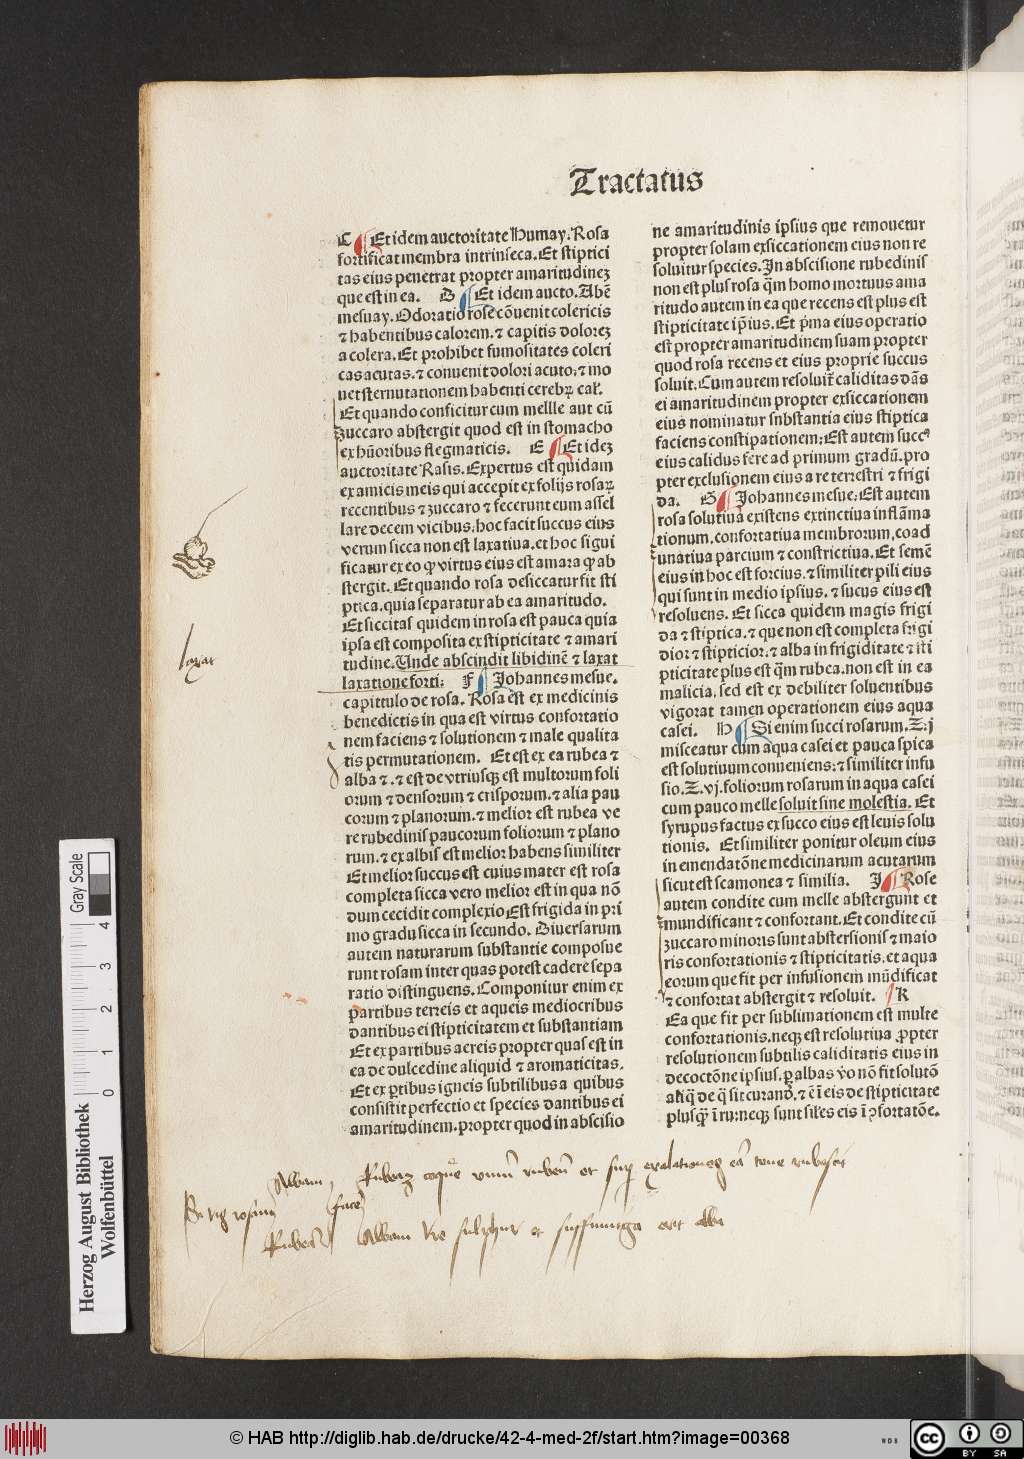 Tractatus
C Et idem auctoritate Humay. Rosa
fortificat membra intrinseca. Et stiptici
tas eius penetrat propter amaritudineꝫ
que est in ea. D Et idem aucto. Abē
mesuay. Odoratio rose cōuenit colericis
⁊ habentibus calorem. ⁊ capitis doloreꝫ
a colera. Et prohibet fumositates coleri
cas acutas. ⁊ conuenit dolori acuto: ⁊ mo
uet sternutationem habenti cerebꝝ cal'.
Et quando conficitur cum mellle aut cū
zuccaro abstergit quod est in stomacho
ex hūoribus flegmaticis. E Et ideꝫ
auctoritate Rasis. Expertus est quidam
ex amicis meis qui accepit ex folijs rosaꝝ
recentibus ⁊ zuccaro ⁊ fecerunt eum assel
lare decem vicibus: hoc facit succus eius
verum sicca non est laxatiua. et hoc signi
ficatur ex eo ꝙ virtus eius est amara ꝙ ab
stergit. Et quando rosa desiccatur fit sti
ptica. quia separatur ab ea amaritudo.
Et siccitas quidem in rosa est pauca quia
ipsa est composita ex stipticitate ⁊ amari
tudine. Unde abscindit libidinē ⁊ laxat
laxatione forti: F Johannes mesue.
capittulo de rosa. Rosa est ex medicinis
benedictis in qua est virtus confortatio
nem faciens ⁊ solutionem ⁊ male qualita
tis permutationem. Et est ex ea rubea ⁊
alba ⁊. ⁊ est de vtriusqꝫ est multorum foli
orum ⁊ densorum ⁊ crisporum. ⁊ alia pau
corum ⁊ planorum. ⁊ melior est rubea ve
re rubedinis paucorum foliorum ⁊ plano
rum. ⁊ ex albis est melior habens similiter
Et melior succus est cuius mater est rosa
completa sicca vero melior est in qua nō
dum cecidit complexio Est frigida in pri
mo gradu sicca in secundo. Diuersarum
autem naturarum substantie composue
runt rosam inter quas potest cadere sepa
ratio distinguens. Componitur enim ex
partibus terreis et aqueis mediocribus
dantibus ei stipticitatem et substantiam
Et ex partibus aereis propter quas est in
ea de dulcedine aliquid ⁊ aromaticitas.
Et ex ꝑtibus igneis subtilibus a quibus
consistit perfectio et species dantibus ei
amaritudinem. propter quod in abscisio
ne amaritudinis ipsius que remouetur
propter solam exsiccationem eius non re
soluitur species. In abscisione rubedinis
non est plus rosa q̄m homo mortuus ama
ritudo autem in ea que recens est plus est
stipticitate ip̄ius. Et p̄ma eius operatio
est propter amaritudinem suam propter
quod rosa recens et eius proprie succus
soluit. Cum autem resoluit' caliditas dās
ei amaritudinem propter exsiccationem
eius nominatur snbstantia eius stiptica
faciens constipationem: Est autem succꝰ
eius calidus fere ad primum gradū. pro
pter exclusionem eius a re terrestri ⁊ frigi
da. G Johannes mesue: Est autem
rosa solutiua existens extinctiua inflāma
tionum. confortatiua membrorum. coad
unatiua parcium ⁊ constrictiua. Et semē
eius in hoc est forcius. ⁊ similiter pili eius
qui sunt in medio ipsius. ⁊ sucus eius est
resoluens. Et sicca quidem magis frigi
da ⁊ stiptica. ⁊ que non est completa frigi
dior ⁊ stipticior. ⁊ alba in frigiditate ⁊ sti
pticitate plus est q̄m rubea. non est in ea
malicia. sed est ex debiliter soluentibus
vigorat tamen operationem eius aqua
casei. H Si enim succi rosarum. ℥. j
misceatur cum aqua casei et pauca spica
est solutiuum conueniens: ⁊ similiter infu
sio. ℥. vj. foliorum rosarum in aqua casei
cum pauco melle soluit sine molestia. Et
syrupus factus ex succo eius est leuis solu
tionis. Et similiter ponitur oleum eius
in emendatōne medicinarum acutarum
sicut est scamonea ⁊ similia. J Rose
autem condite cum melle abstergunt et
mundificant ⁊ confortant. Et condite cū
zuccaro minoris sunt abstersionis ⁊ maio
ris confortationis ⁊ stipticitatis. et aqua
eorum que fit per infusionem mūdificat
⁊ confortat abstergit ⁊ resoluit. K
Ea que fit per sublimationem est multe
confortationis. neqꝫ est resolutiua ꝓpter
resolutionem subtilis caliditatis eius in
decoctōne ipsius. ꝑ albas v̊o nō fit solutō
a stipticitate
laxat
Herzog August Bibliothek
Wolfenbüttel
0 1 2 3 4
Gray Scale
© HAB http://diglib.hab.de/drucke/42-4-med-2f/start.htm?image=00368
WDB
cc BY SA